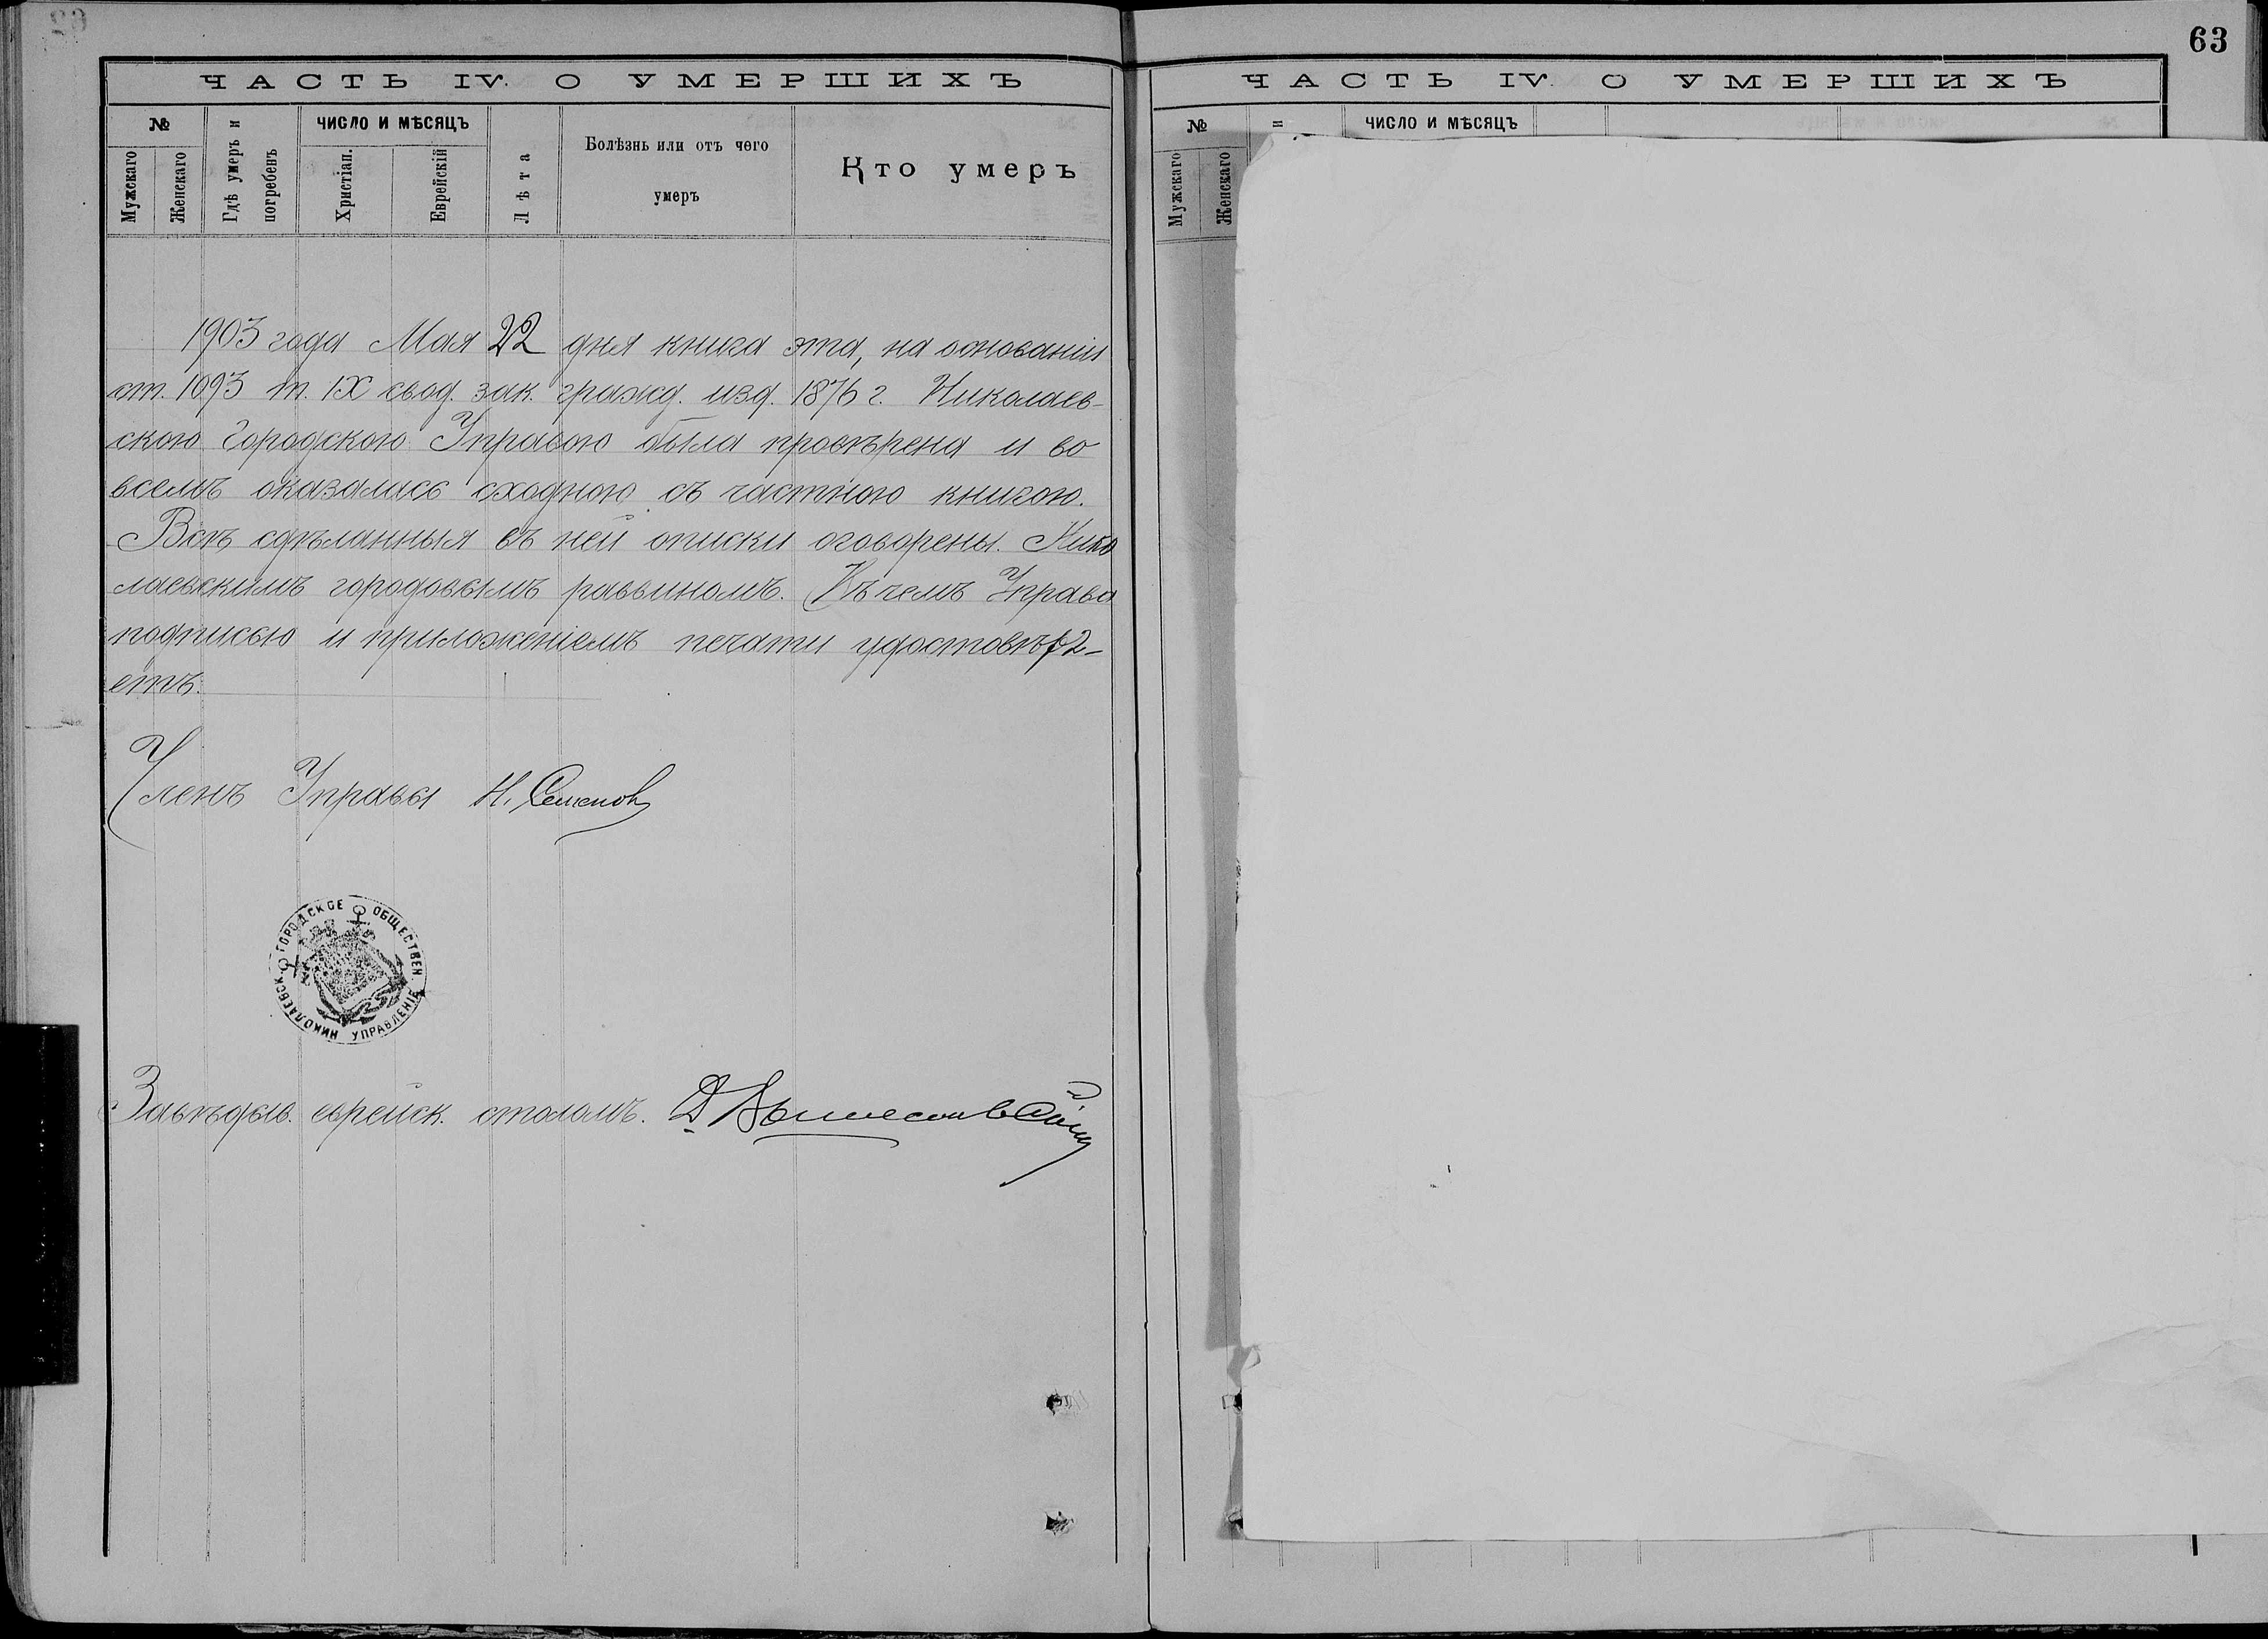 ЧАСТЬ IV. О УМЕРШИХЪ
№
Мужскаго
Женскаго
Гдѣ умеръ и погребенъ
ЧИСЛО И МѢСЯЦЪ
Христіан.
Еврейскій
Лѣта
Болѣзнь или отъ чего
умеръ
Кто умеръ
1903 года Мая 22 дня книга эта, на основаніи
ст. 1093 т. IX свод. зак. гражд. изд. 1876 г. Николаев-
скою Городскою Управою была провѣрена и во
всемъ оказалась сходною съ частною книгою.
Всѣ сдѣланныя въ ней описки оговорены Нико
лаевскимъ городовымъ раввиномъ. Въ чемъ Управа
подписью и приложеніемъ печати удостовѣря-
етъ.
Членъ Управы Н. Семенов
НИКОЛАЕВСКОЕ ГОРОДСКОЕ ОБЩЕСТВЕН. УПРАВЛЕНІЕ
Завѣдыв. еврейск. столомъ. Д
63
ЧАСТЬ IV. О УМЕРШИХЪ
№
Мужскаго
Женскаго
и
ЧИСЛО И МѢСЯЦЪ